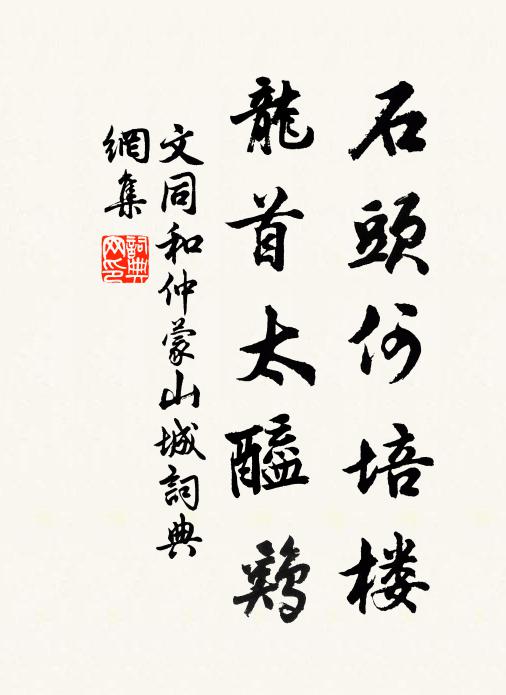 石頭何培楼
龍首太醯鶏
文同和仲蒙山城詞典
網集
詞典网印